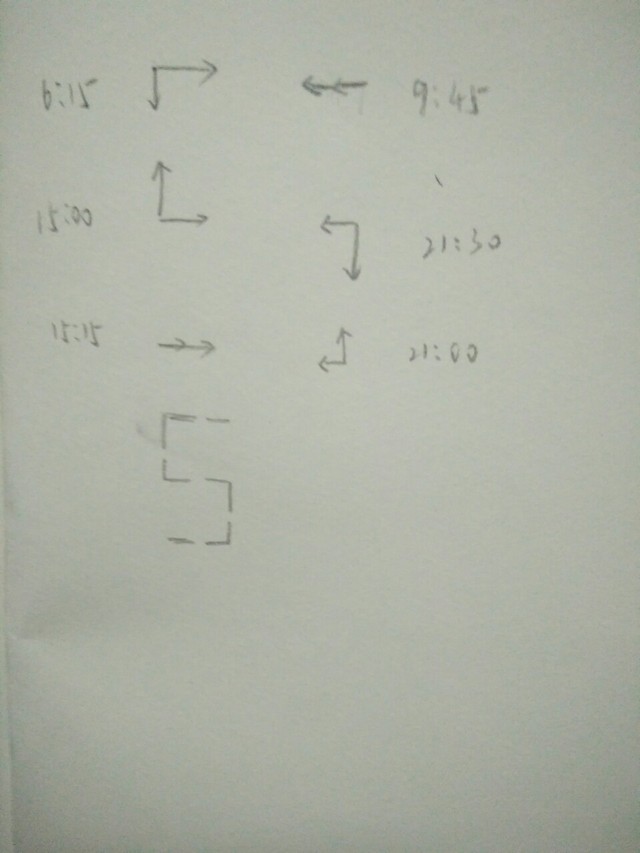 6:15 9:45
15:00 21:30
15:15 21:00